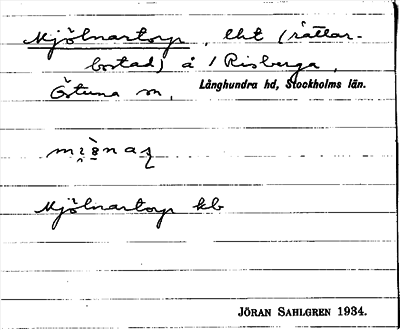 Mjölnartorp, lht (rättar-
bostad) å /Risberga,
Östuna sn, Långhundra hd, Stockholms län.
Mjölnartorp kb
JÖRAN SAHLGREN 1934.